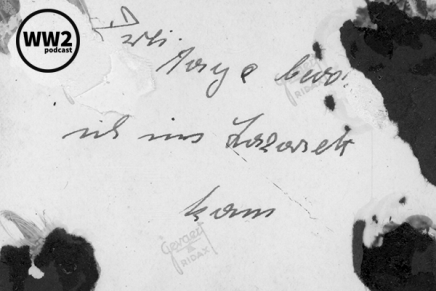 WW2
podcast
Zwei
Tage bevor
ich ins Lazarett
kam
Gevaert
RIDAX
Gevaert
RIDAX